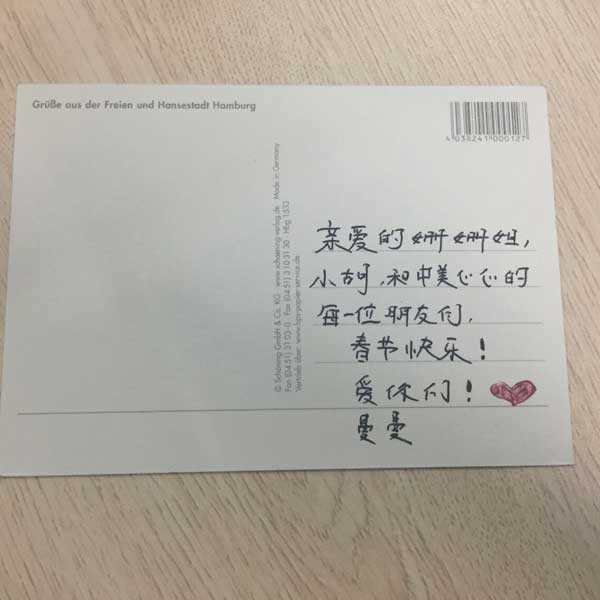 Grüße aus der Freien und Hansestadt Hamburg
4 038241 000127
© Schöning GmbH & Co. KG · www.schoening-verlag.de · Made in Germany
Fon (04 51) 31 03-0 · Fax (04 51) 3 10 31 30 · Hbg 1533
Vertrieb über: www.hps-papier-service.de
亲爱的姗姗姐,
小胡,和中美心心的
每一位朋友们,
春节快乐!
爱你们!
曼曼